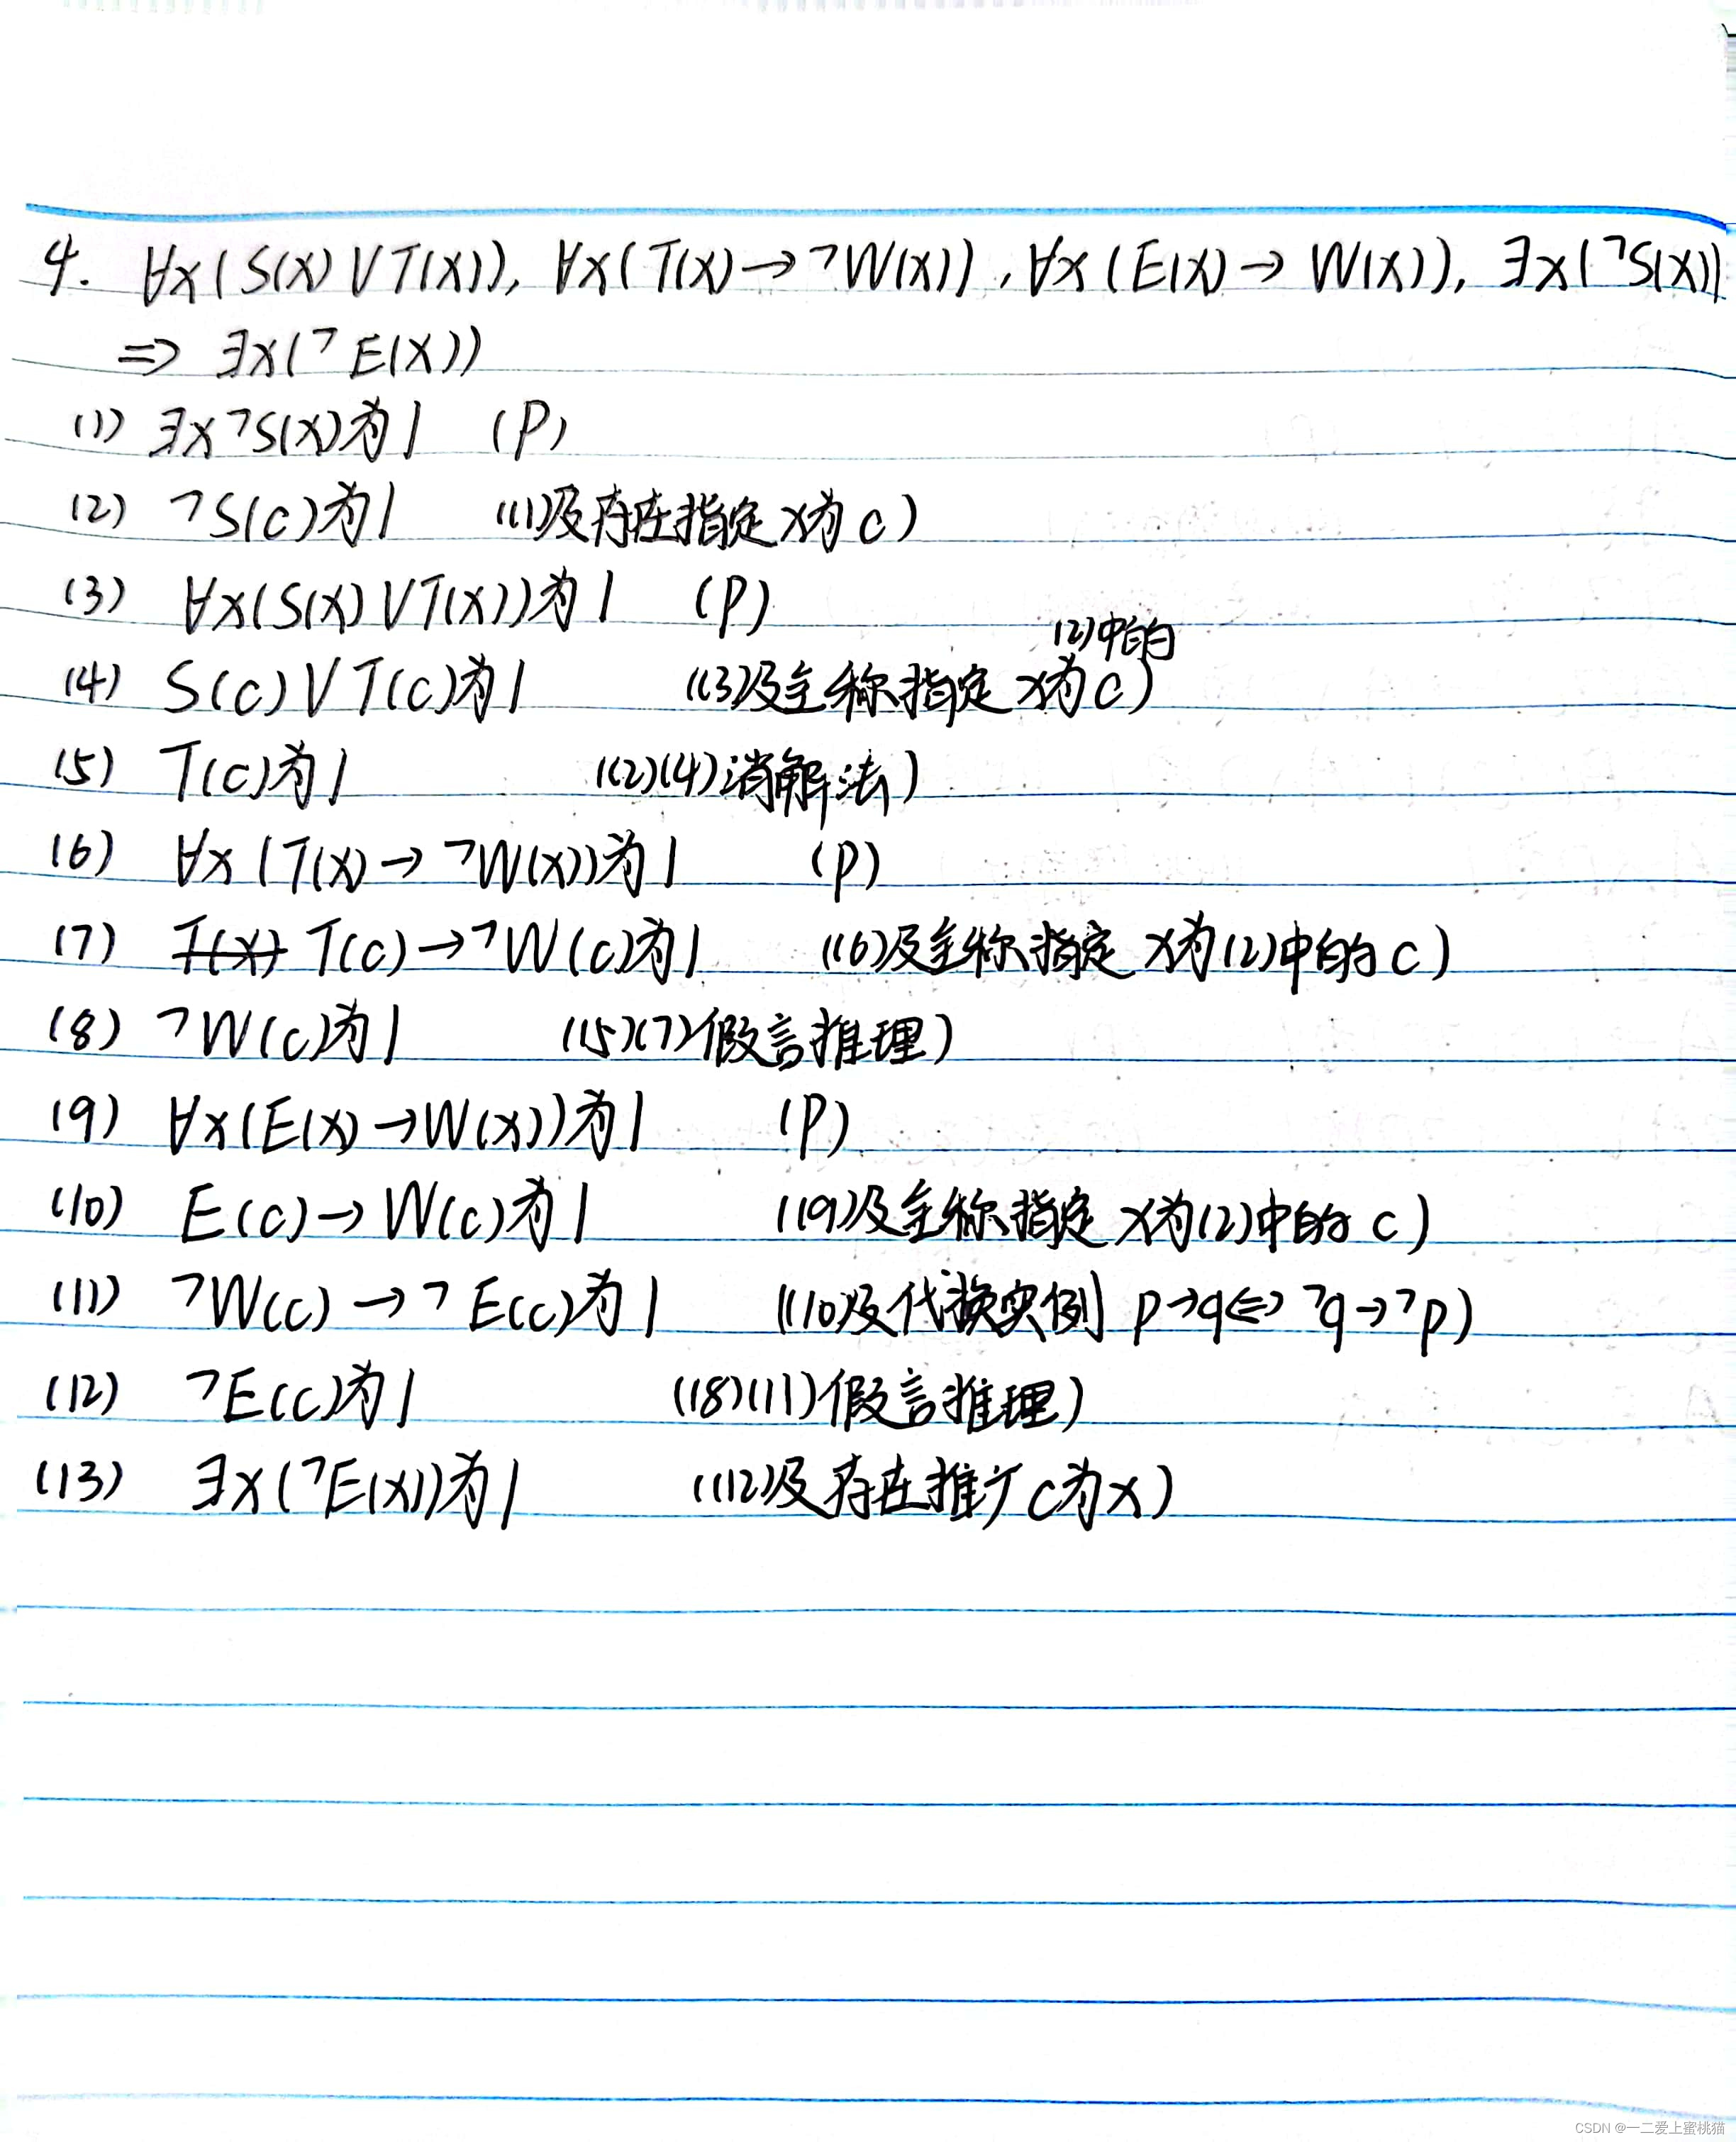 4. ∀x(S(x)∨T(x)), ∀x(T(x)→¬W(x)), ∀x(E(x)→W(x)), ∃x(¬S(x))
⇒ ∃x(¬E(x))
(1) ∃x¬S(x)为1 (P)
(2) ¬S(c)为1 ((1)及存在指定x为c)
(3) ∀x(S(x)∨T(x))为1 (P)
(2)中的
(4) S(c)∨T(c)为1 ((3)及全称指定x为c)
(5) T(c)为1 ((2)(4)消解法)
(6) ∀x(T(x)→¬W(x))为1 (P)
(7) T(x) T(c)→¬W(c)为1 ((6)及全称指定x为(2)中的c)
(8) ¬W(c)为1 ((5)(7)假言推理)
(9) ∀x(E(x)→W(x))为1 (P)
(10) E(c)→W(c)为1 ((9)及全称指定x为(2)中的c)
(11) ¬W(c)→¬E(c)为1 ((10)及代换实例p→q⇔¬q→¬p)
(12) ¬E(c)为1 ((8)(11)假言推理)
(13) ∃x(¬E(x))为1 ((12)及存在推广c为x)
CSDN @一二爱上蜜桃猫